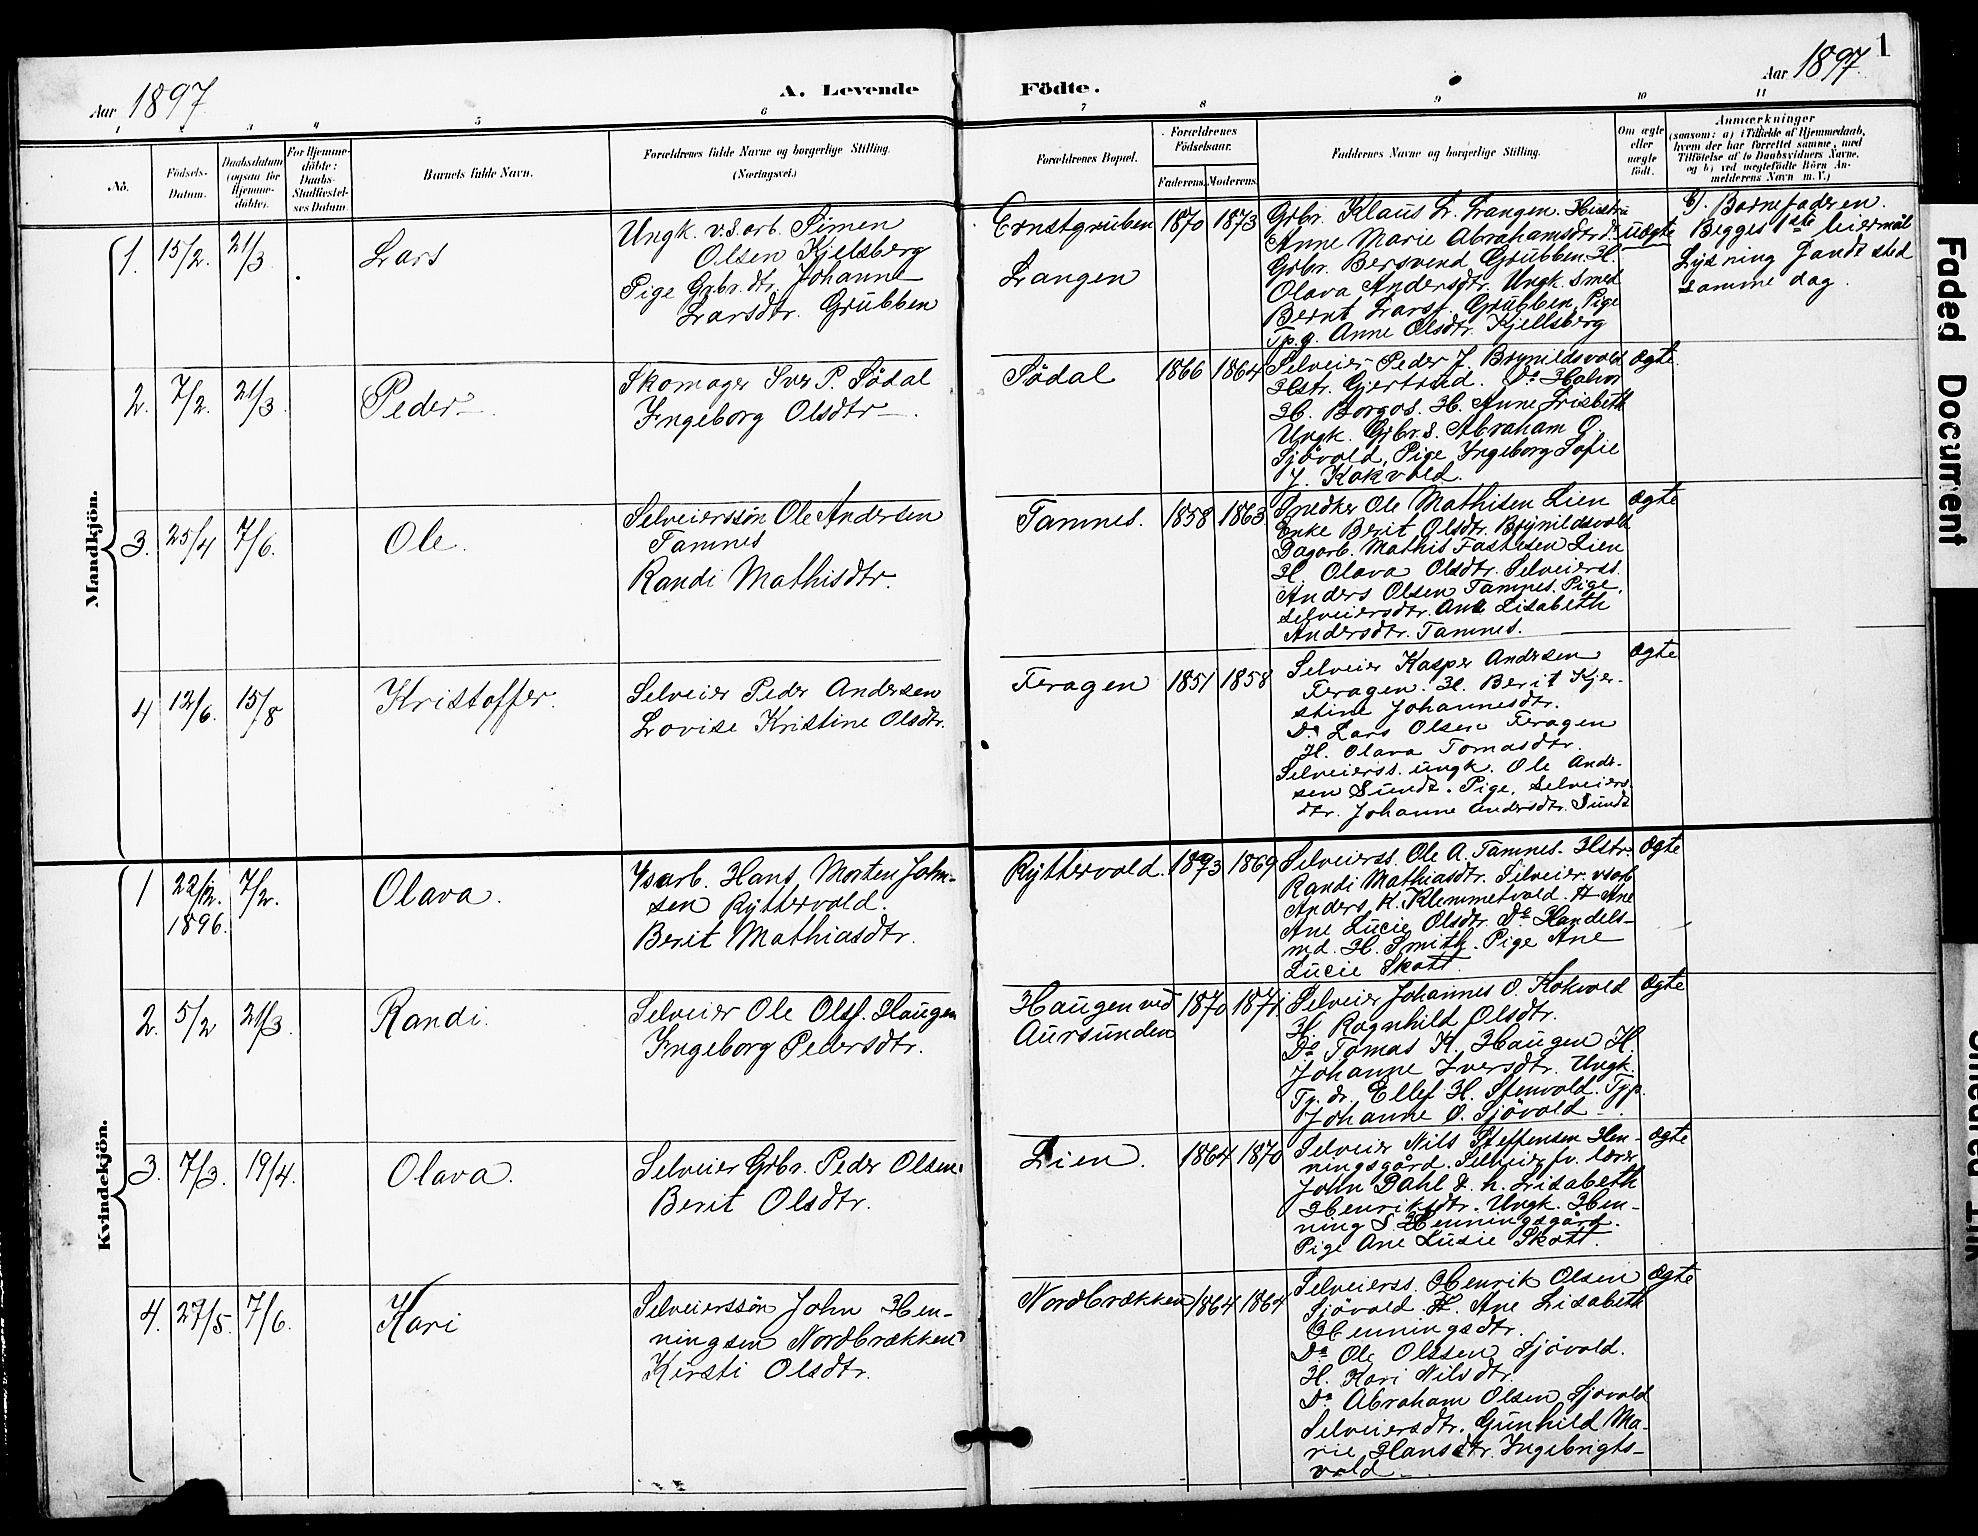 Aar 1897
A. Levende
Födte.
Aar 1897.
1
1 2 3 4 5 6 7 8 9 10 11
No.
Födsels-
Datum.
Daabsdatum
(ogsaa for
Hjemme-
döbte).
For Hjemme-
döbte:
Daabs-
Stadfæstel-
ses Datum.
Barnets fulde Navn.
Forældrenes fulde Navne og borgerlige Stilling.
(Næringsvei.)
Forældrenes Bopæl.
Forældrenes
Födselsaar.
Faderens. Moderens.
Faddernes Navne og borgerlige Stilling.
Om ægte
eller
uægte
födt.
Anmærkninger
(saasom: a) i Tilfælde af Hjemmedaab,
hvem der har forrettet samme, med
Tilföielse af to Daabsvidners Navne,
og b) ved uægtefödte Börn An-
melderens Navn m. V.)
Mandkjön.
1. 15/2. 21/3 Lars
Ungk. v.s.arb. Simen
Olsen Kjellsberg
Pige Grbr.dtr. Johanne
Larsdtr. Grubben
Ernstgruben
Langen
1870 1873
Grbr. Klaus L. Langen. Hustru
Anne Marie Abrahamsdtr. d.
Grbr. Bersvend Grubben. H.
Olava Andersdtr. Ungk. Smed
Bernt Larss. Grubben, Pige
Tp.g. Anne Olsdtr. Kjellsberg
uægte
G. Barnefaderen.
Begges 1ste leiermål
Lysning fandt sted
samme dag.
2. 7/2. 21/3. Peder
Skomager Iver P. Södal
Ingeborg Olsdtr.
Södal
1866 1864
Selveier Peder J. Brynildsvold
Hstr. Gjertrud. Do Halvor
H. Borgos. H. Anne Lisbeth
Ungk. Grbr.s. Abraham O.
Sjövold, Pige Ingeborg Sofie
J. Kokvold.
ægte
3. 25/4 7/6. Ole.
Selveierssön Ole Andersen
Tamnes
Randi Mathisdtr.
Tamnes.
1858 1863.
Snedker Ole Mathisen Lien
Enke Berit Olsdtr. Brynildsvold
Dagarb. Mathis Fastesen Lien
H. Olava Olsdtr. Selveierss.
Anders Olsen Tamnes. Pige,
selveiersdtr. Ane Lisabeth
Andersdtr. Tamnes.
ægte
4 12/6. 15/8 Kristoffer.
Selveier Peder Andersen
Lovise Kristine Olsdtr.
Feragen
1851 1858
Selveier Kasper Andersen
Feragen. H. Berit Kjer-
stine Johannesdtr.
Do Lars Olsen Feragen
H. Olava Tomasdtr.
Selveierss. ungk. Ole Andr-
sen Sundt. Pige, selveiers
dtr. Johanne Andersdtr. Sundt
ægte
Kvindekjön.
1 22/12. 1896. 7/2. Olava.
Vsarb. Hans Morten John-
sen Ryttervold.
Berit Mathiasdtr.
Ryttervold.
1893 1869
Selveierss. Ole A. Tamnes. Hstr.
Randi Mathiasdtr. Selveier vsarb
Anders K. Klemmetvold. H Ane
Ane Lucie Olsdtr. Do Handels-
md. H. Smith. Pige Ane
Lucie Skott.
ægte
2. 5/2 21/3. Randi.
Selveier Ole Olss. Haugen
Ingeborg Pedersdtr.
Haugen ved
Aursunden
1870 1871
Selveier Johannes O. Kokvold
H. Ragnhild Olsdtr.
Do Tomas K. Haugen H.
Johanne Iversdtr. Ungk.
Tj.dr. Ellef H. Stenvold. Tjp.
Johanne O. Sjövold.
ægte
3. 7/3. 19/4. Olava.
Selveier Grbr. Peder Olsen.
Berit Olsdtr.
Lien.
1864 1870
Selveier Nils Steffensen Hen-
ningsgård. Selveier fv. lærer
John Dahl & h. Lisabeth
Henriksdtr. Ungk. Hen-
ning S Henningsgård.
Pige Ane Lusie Skott.
ægte
4. 27/5. 7/6. Kari
Selveierssön John Hen-
ningsen Nordbrækken
Kirsti Olsdtr.
Nordbrækken
1864 1864
Selveierss. Henrik Olsen
Sjövold. H. Ane Lisabeth
Henningsdtr.
Do Ole Olssen Sjövold.
H. Kari Nilsdtr.
Do Abraham Olsen Sjovold
Selveiersdtr. Gunhild Ma-
rie Hansdtr. Ingebrigts-
vold
ægte
Faded Document